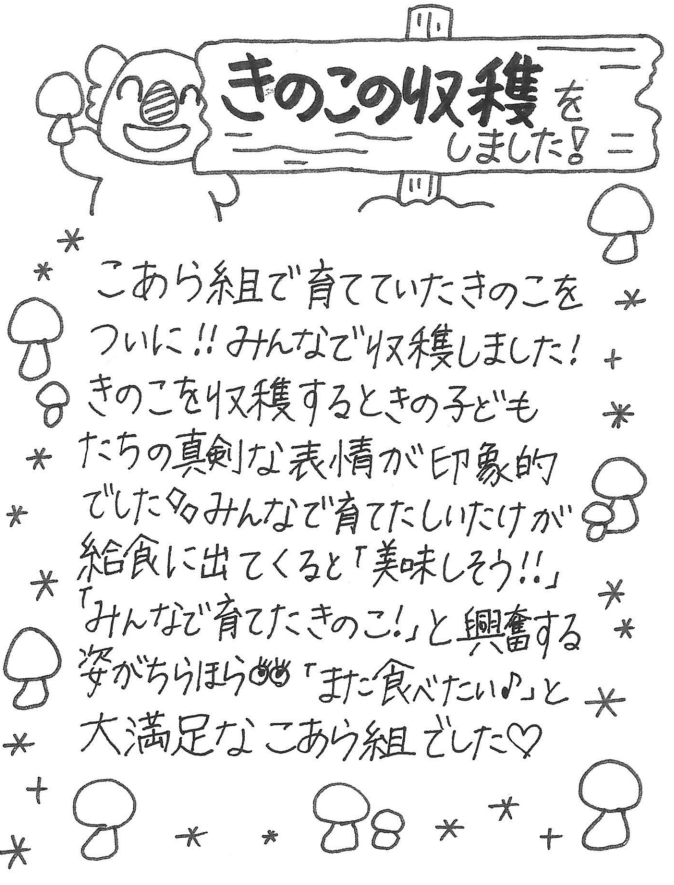 きのこの収穫を
しました!
こあら組で育てていたきのこを
ついに!!みんなで収穫しました!
きのこを収穫するときの子ども
たちの真剣な表情が印象的
でした みんなで育てたしいたけが
給食に出てくると「美味しそう!!」
「みんなで育てたきのこ!」と興奮する
姿がちらほら👀「また食べたい♪」と
大満足なこあら組でした♡